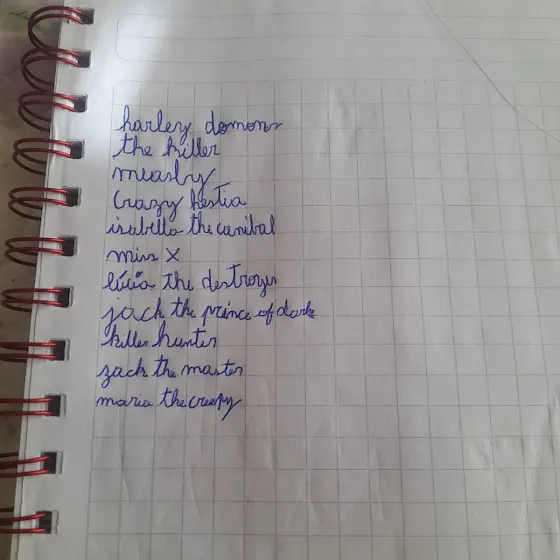 harley demons
the killer
measly
crazy hestia
isabella the canibal
miss X
lúcia the destroyer
jack the prince of dark
killer hunter
zack the master
maria the creepy